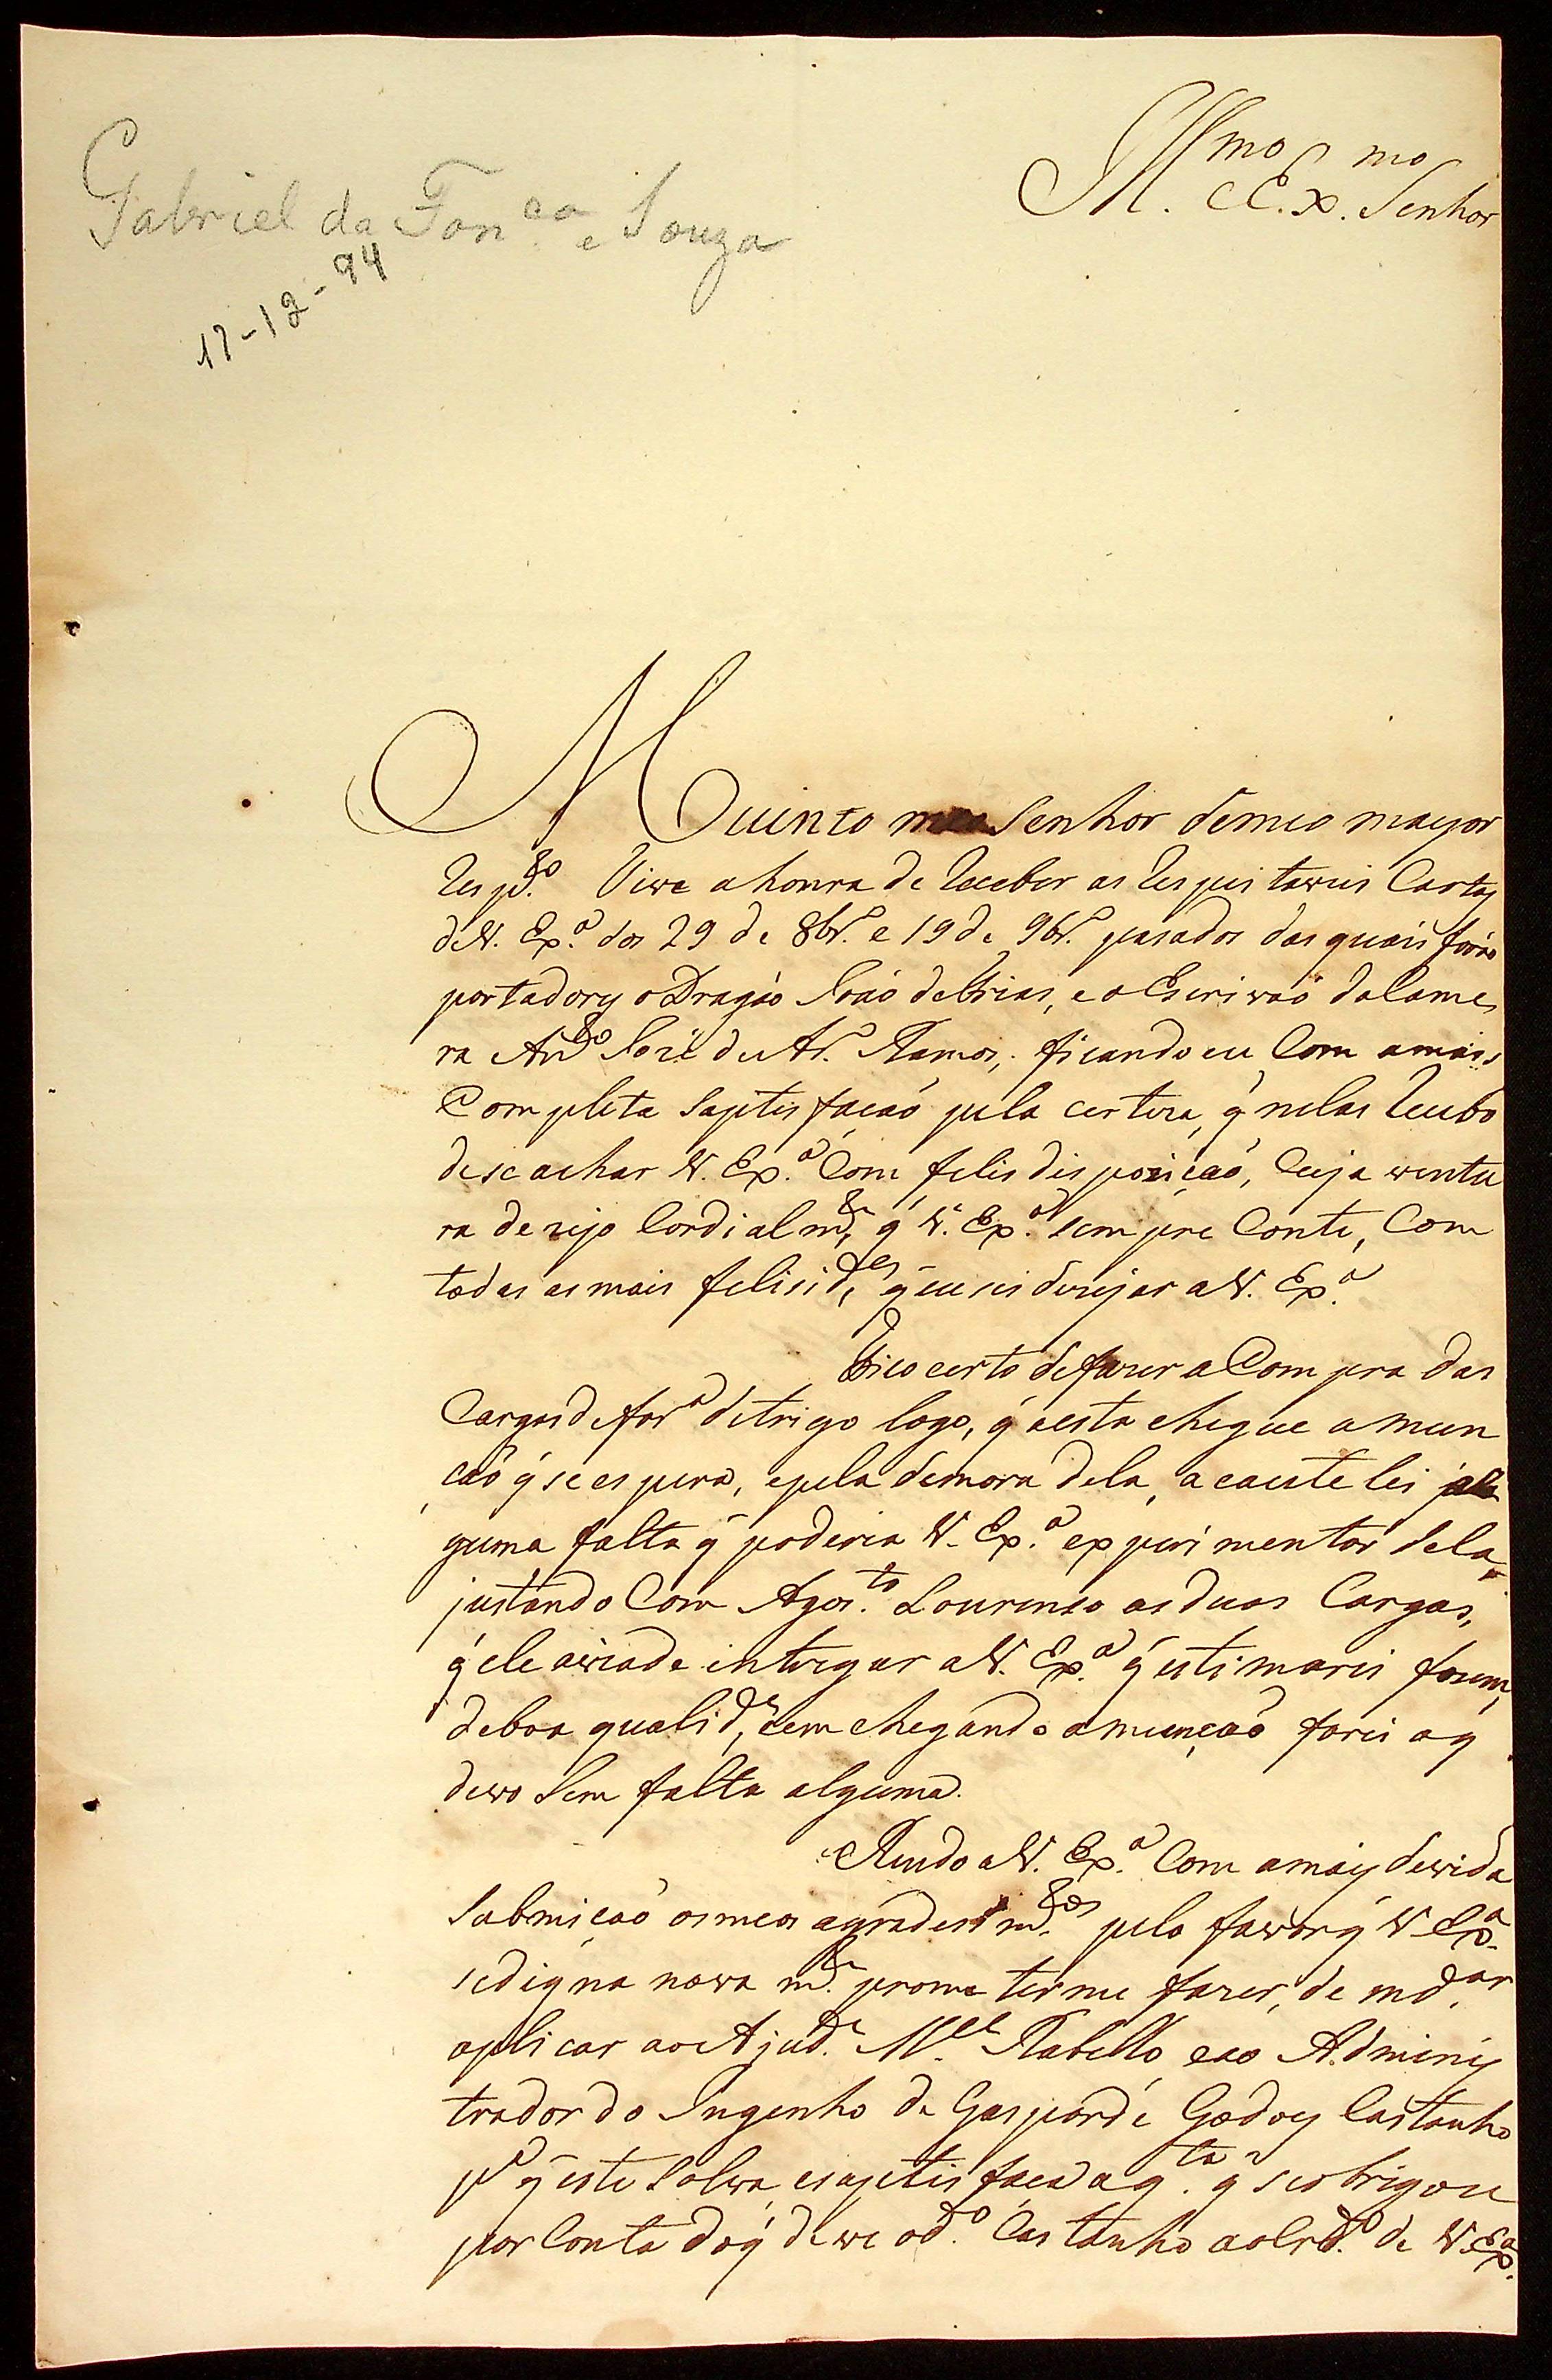 Gabriel da Fonca e Souza
17-12-94
Illmo. Exmo. Senhor
Muinto meu Senhor demeo mayor
Respto. Tive a honra de Receber as Respeitaveis Cartas
de V. Exa. dos 29 de 8br.o e 19 de 9br.o pasados das quais forão
portadores o Dragão João de Brias, e o Escrivão da Came
ra Anto. José de Ar.o Ramos, ficando eu Com a mais
Completa Sapitisfação pela certeza, q̃ nelas Recebo
de se achar V. Exa. Com felis dispozição, Cuja ventu
ra dezejo Cordialmte. q̃ V. Exa. sempre Conte, Com
todas as mais felisides. q̃ eu sei dezejar a V. Exa.
Fico certo de fazer a Compra das
Cargas de fara. de trigo logo, q̃ a esta chegue a mun
ção q̃ se espera, e pela demora dela, acautelei al
guma falta q̃ poderia V. Exa. experimentar dela
justando Com Agosto. Lourenso as duas Cargas,
q̃ ele avia de intregar a V. Exa. q̃ estimarei fosem
de boa qualide, e em chegando a munção farei o q̃
devo Sem falta alguma.
Rendo a V. Exa. Com a mais devida
Submição os meos agradesimtos. pelo favor q̃ V. Exa.
se digna novamte. prometerme fazer, de mdar.
aplicar ao Ajude. Mel. Rabello, e ao Adminis
trador do Ingenho de Gaspar de Godoy Castanho
pa. q̃ este Solva, e sapitisfaça a qta. q̃ se obrigou
por Conta do q̃ deve o do. Castanho ao Crdo. de V. Exa.